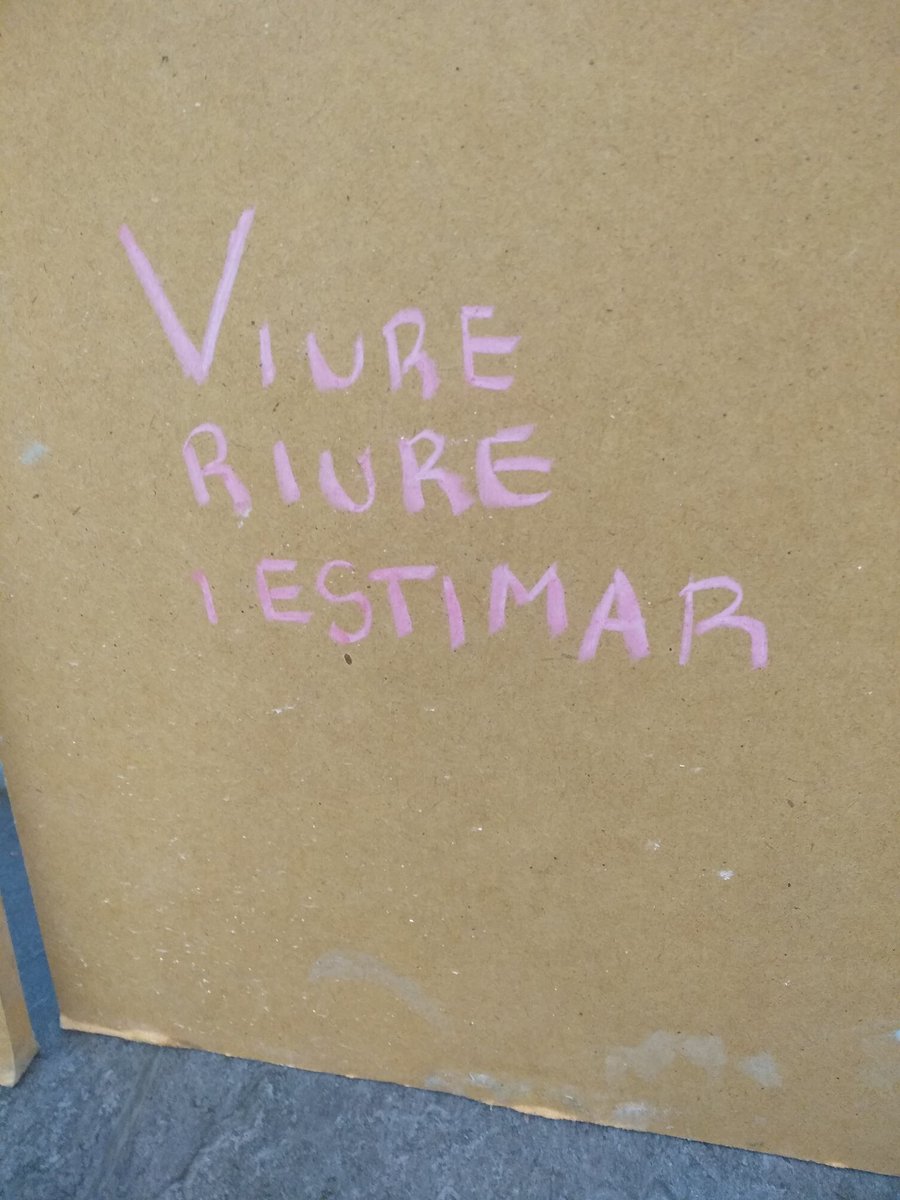 VIURE
RIURE
I ESTIMAR